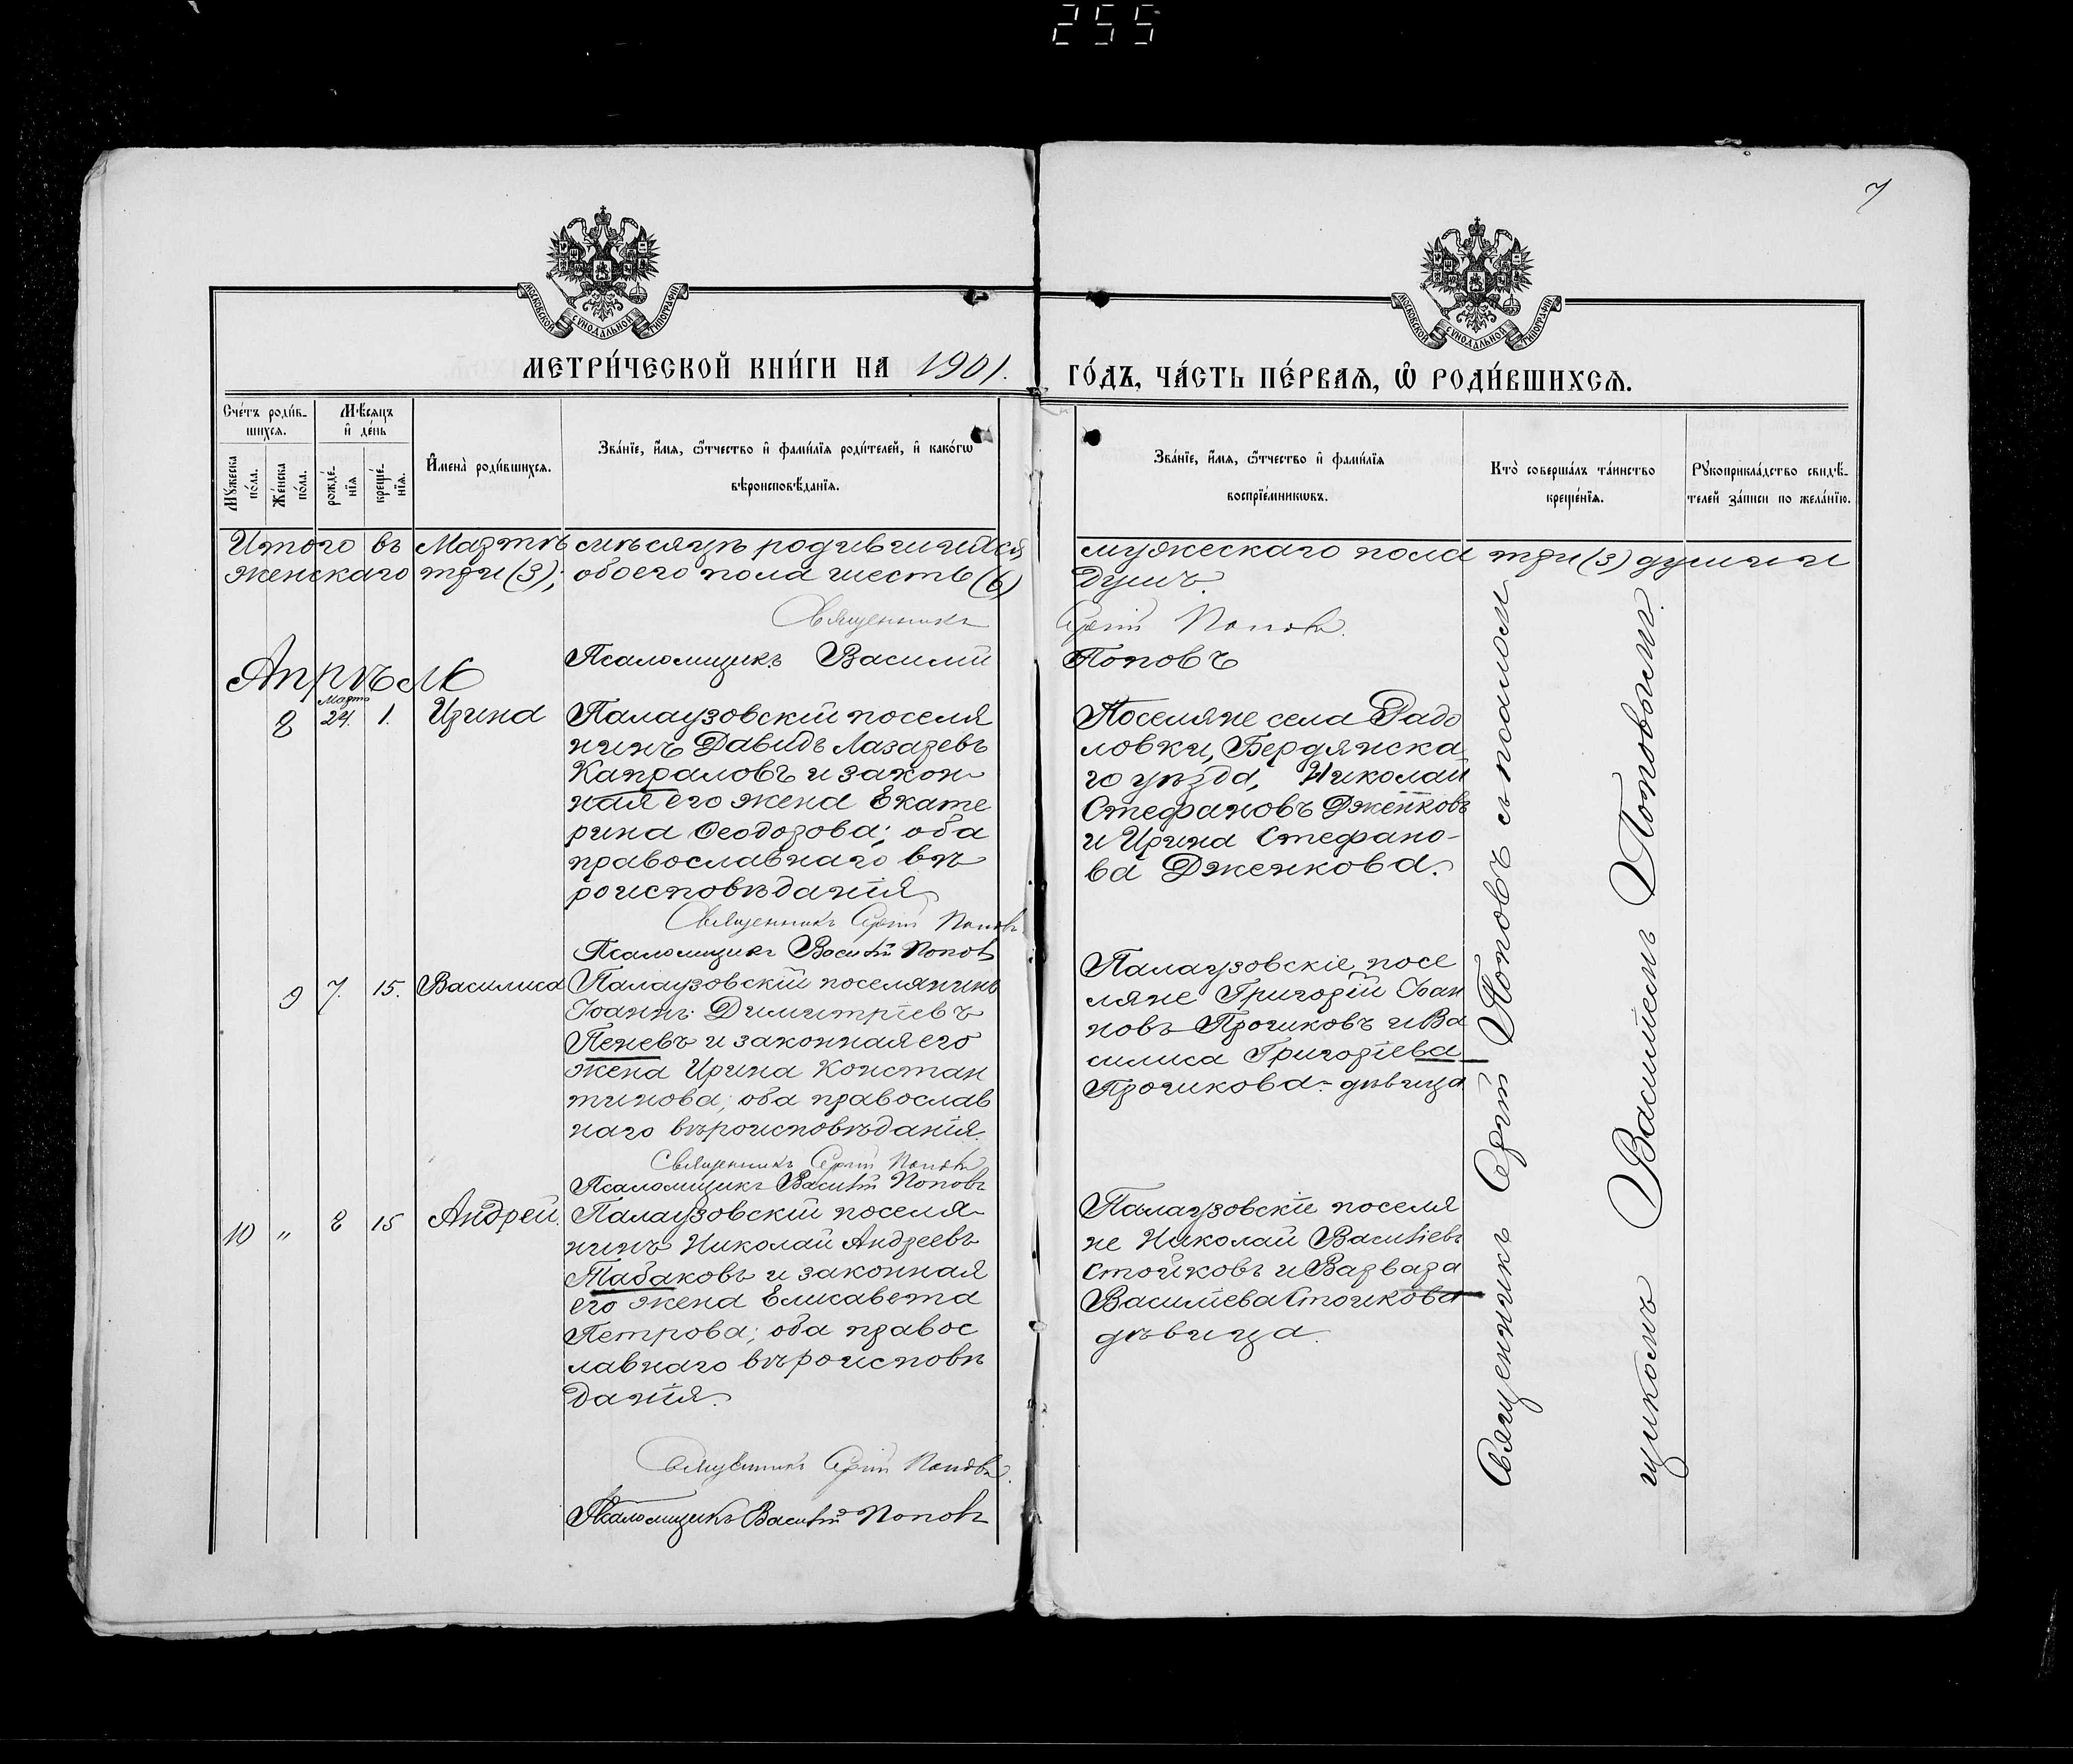 255
7
МОСКОВСКОЙ СѴНОДАЛЬНОЙ ТИПОГРАФІИ
МОСКОВСКОЙ СѴНОДАЛЬНОЙ ТИПОГРАФІИ
МЕТРИ́ЧЕСКОЙ КНИ́ГИ НА 1901. ГО́ДЪ, ЧА́СТЬ ПЕ́РВАѦ, Ѡ҆ РОДИ́ВШИХСѦ.
Сче́тъ роди́в-
шихсѧ.
Мꙋ́жеска
по́ла.
Же́нска
по́ла.
Мѣ́сѧцъ
и҆ де́нь
рожде́-
нїѧ
креще́-
нїѧ.
И҆мена̀ роди́вшихсѧ.
Зва́нїе, и҆́мѧ, ѻ҆́тчество и҆ фами́лїѧ роди́телей, и҆ како́гѡ
вѣроисповѣ́данїѧ.
Зва́нїе, и҆́мѧ, ѻ҆́тчество и҆ фами́лїѧ
воспрїе́мникѡвъ.
Кто̀ соверша́лъ та́инство
креще́нїѧ.
Рꙋкоприкла́дство свидѣ́-
телей за́писи по жела́нїю.
Итого въ Мартѣ мѣсяцѣ родившихся мужескаго пола три (3) души и
женскаго три (3); обоего пола шесть (6) душъ.
Священникъ Сергій Поповъ.
Псаломщикъ Василій Поповъ
Апрѣль
8
Марта
24.
1.
Ирина
Палаузовскій поселя
нинъ Давидъ Лазаревъ
Капраловъ и закон-
ная его жена Екате
рина Ѳеодорова; оба
православнаго вѣ
роисповѣданія
Священникъ Сергій Поповъ.
Псаломщикъ Василій Поповъ
Поселяне села Радо
ловки, Бердянска
го уѣзда, Николай
Стефановъ Дженковъ
и Ирина Стефано-
ва Дженкова.
9
7.
15.
Василиса
Палаузовскій поселянинъ
Іоаннъ Димитріевъ
Пеневъ и законная его
жена Ирина Констан
тинова; оба православ
наго вѣроисповѣданія.
Священникъ Сергій Поповъ
Псаломщикъ Василій Поповъ
Палаузовскіе посе
ляне Григорій Іоан
новъ Прочиковъ и Ва
силиса Григоріева
Прочикова - дѣвица
10
"
8
15
Андрей.
Палаузовскій поселя-
нинъ Николай Андреевъ
Табаковъ и законная
его жена Елисавета
Петрова; оба правос
лавнаго вѣроисповѣ
данія.
Священникъ Сергій Поповъ.
Псаломщикъ Василій Поповъ
Палаузовскіе поселя
не Николай Василіевъ
Стойковъ и Варвара
Василіева Стоикова
дѣвица.
Священникъ Сергій Поповъ съ псалом
щикомъ Василіемъ Поповымъ.